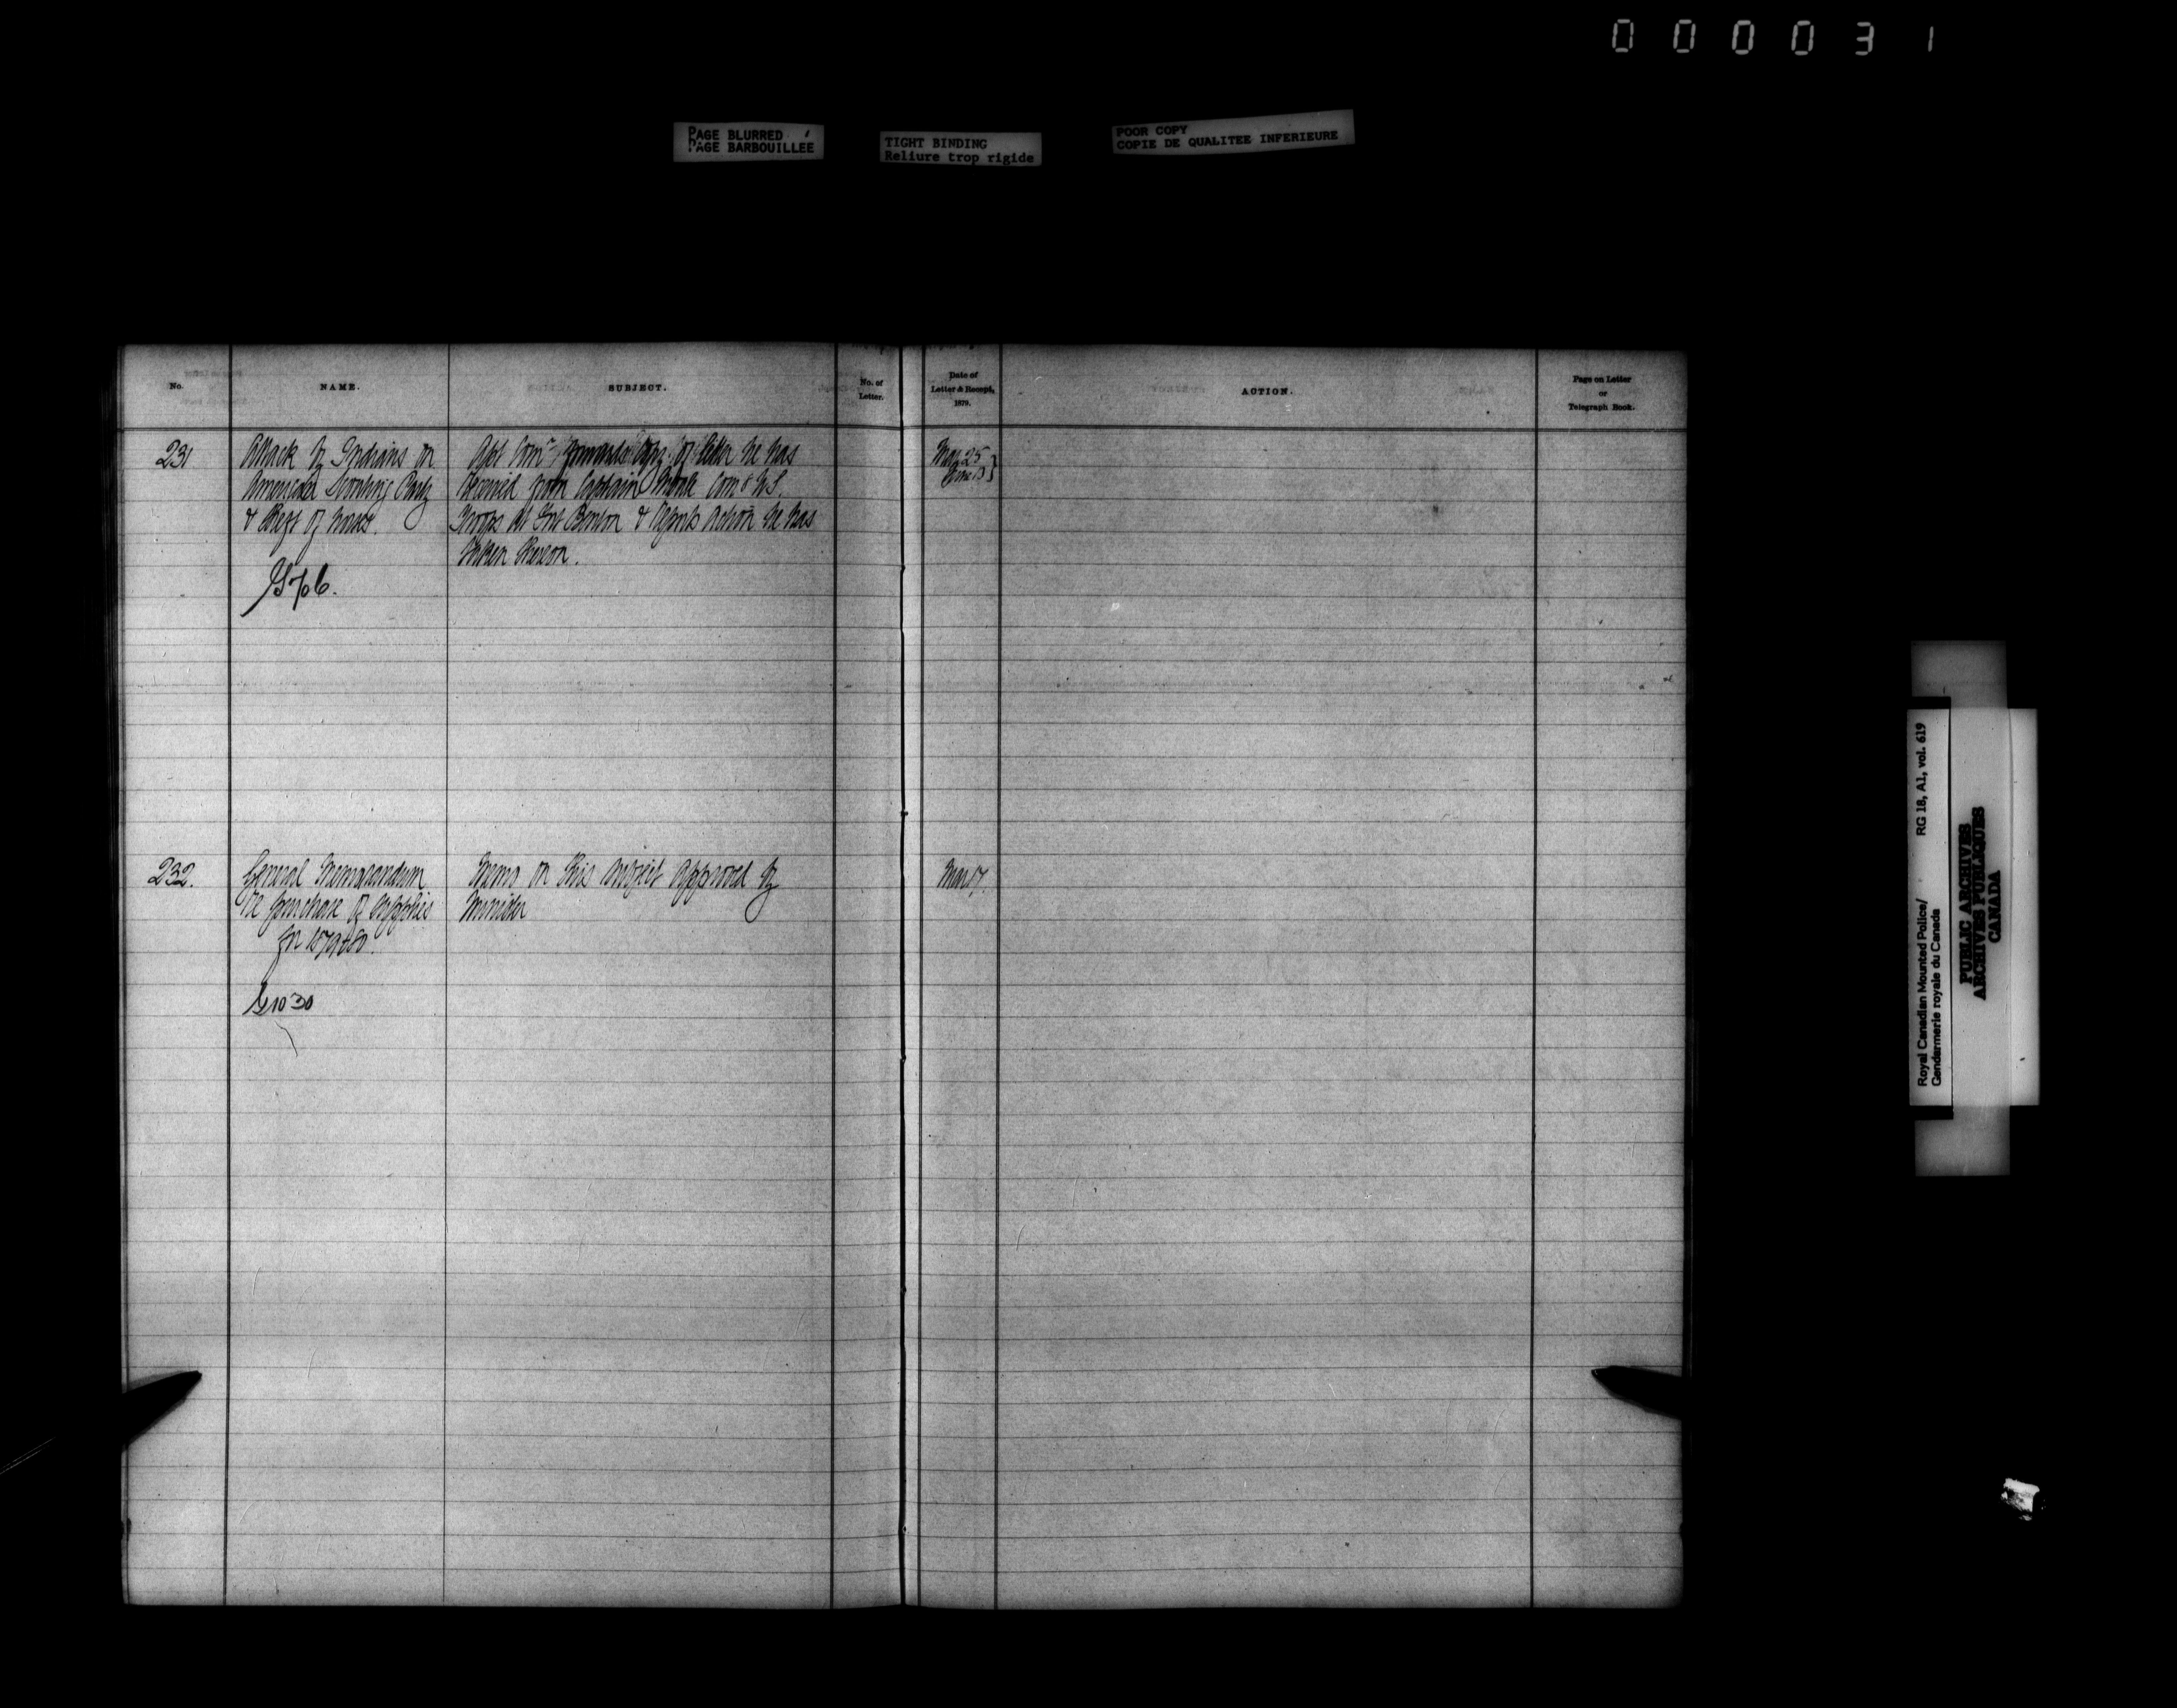 000031
PAGE BLURRED
PAGE BARBOUILLEE
TIGHT BINDING
Reliure trop rigide
POOR COPY
COPIE DE QUALITEE INFERIEURE
No.
NAME.
SUBJECT.
No. of
Letter.
Date of
Letter & Receipt,
1879.
ACTION.
Page on Letter
or
Telegraph Book.
231
Attack by Indians on
American Scouting Party
& theft of horses.
Asst Comr forwards Copy of letter he has
Received from Captain Comg U.S.
Troops at Fort Benton & reports Action he has
taken thereon.
Mar 25
June 13 }
232.
General Memorandum
re purchase of supplies
for 1879+80.
G 1030
Memo on this subject approved by
Minister
Mar 17.
Royal Canadian Mounted Police/
Gendarmerie royale du Canada
RG 18, A1, vol. 619
PUBLIC ARCHIVES
ARCHIVES PUBLIQUES
CANADA